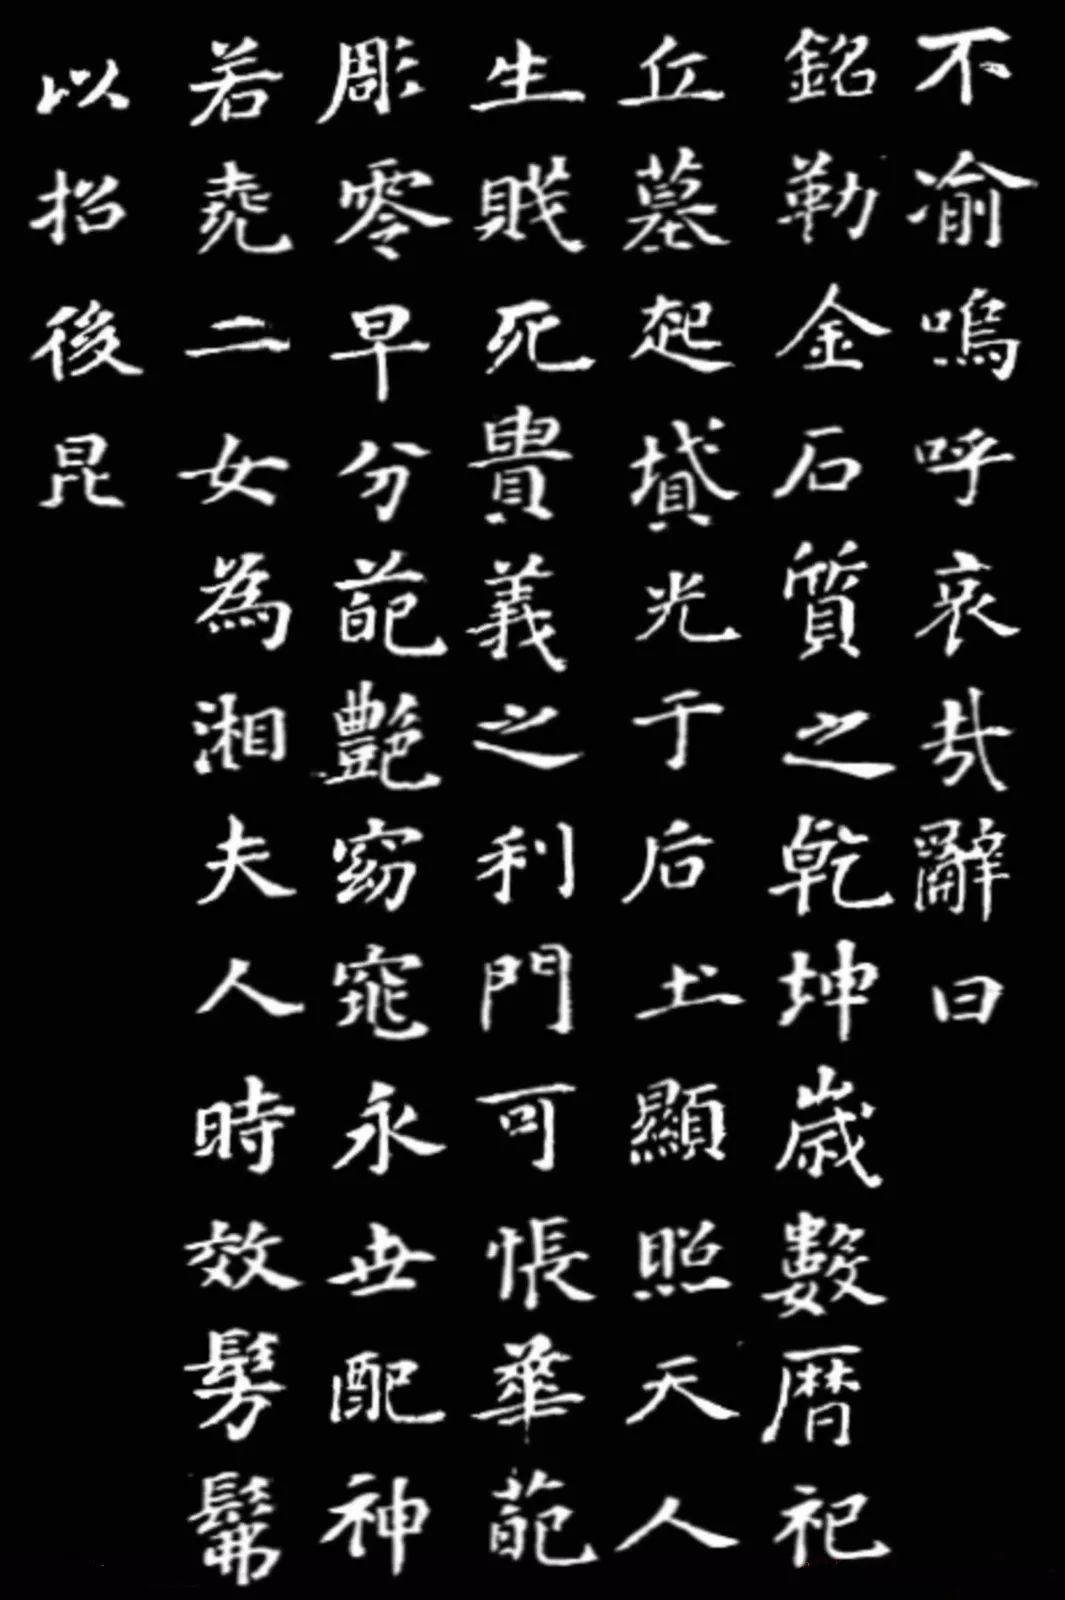 不渝嗚呼哀哉辭曰
銘勒金石質之乾坤歲數曆祀
丘墓起墳光于后土顯照天人
生賤死貴義之利門可悵華葩
彫零早分葩艷窈窕永世配神
若堯二女為湘夫人時效髣髴
以招後昆